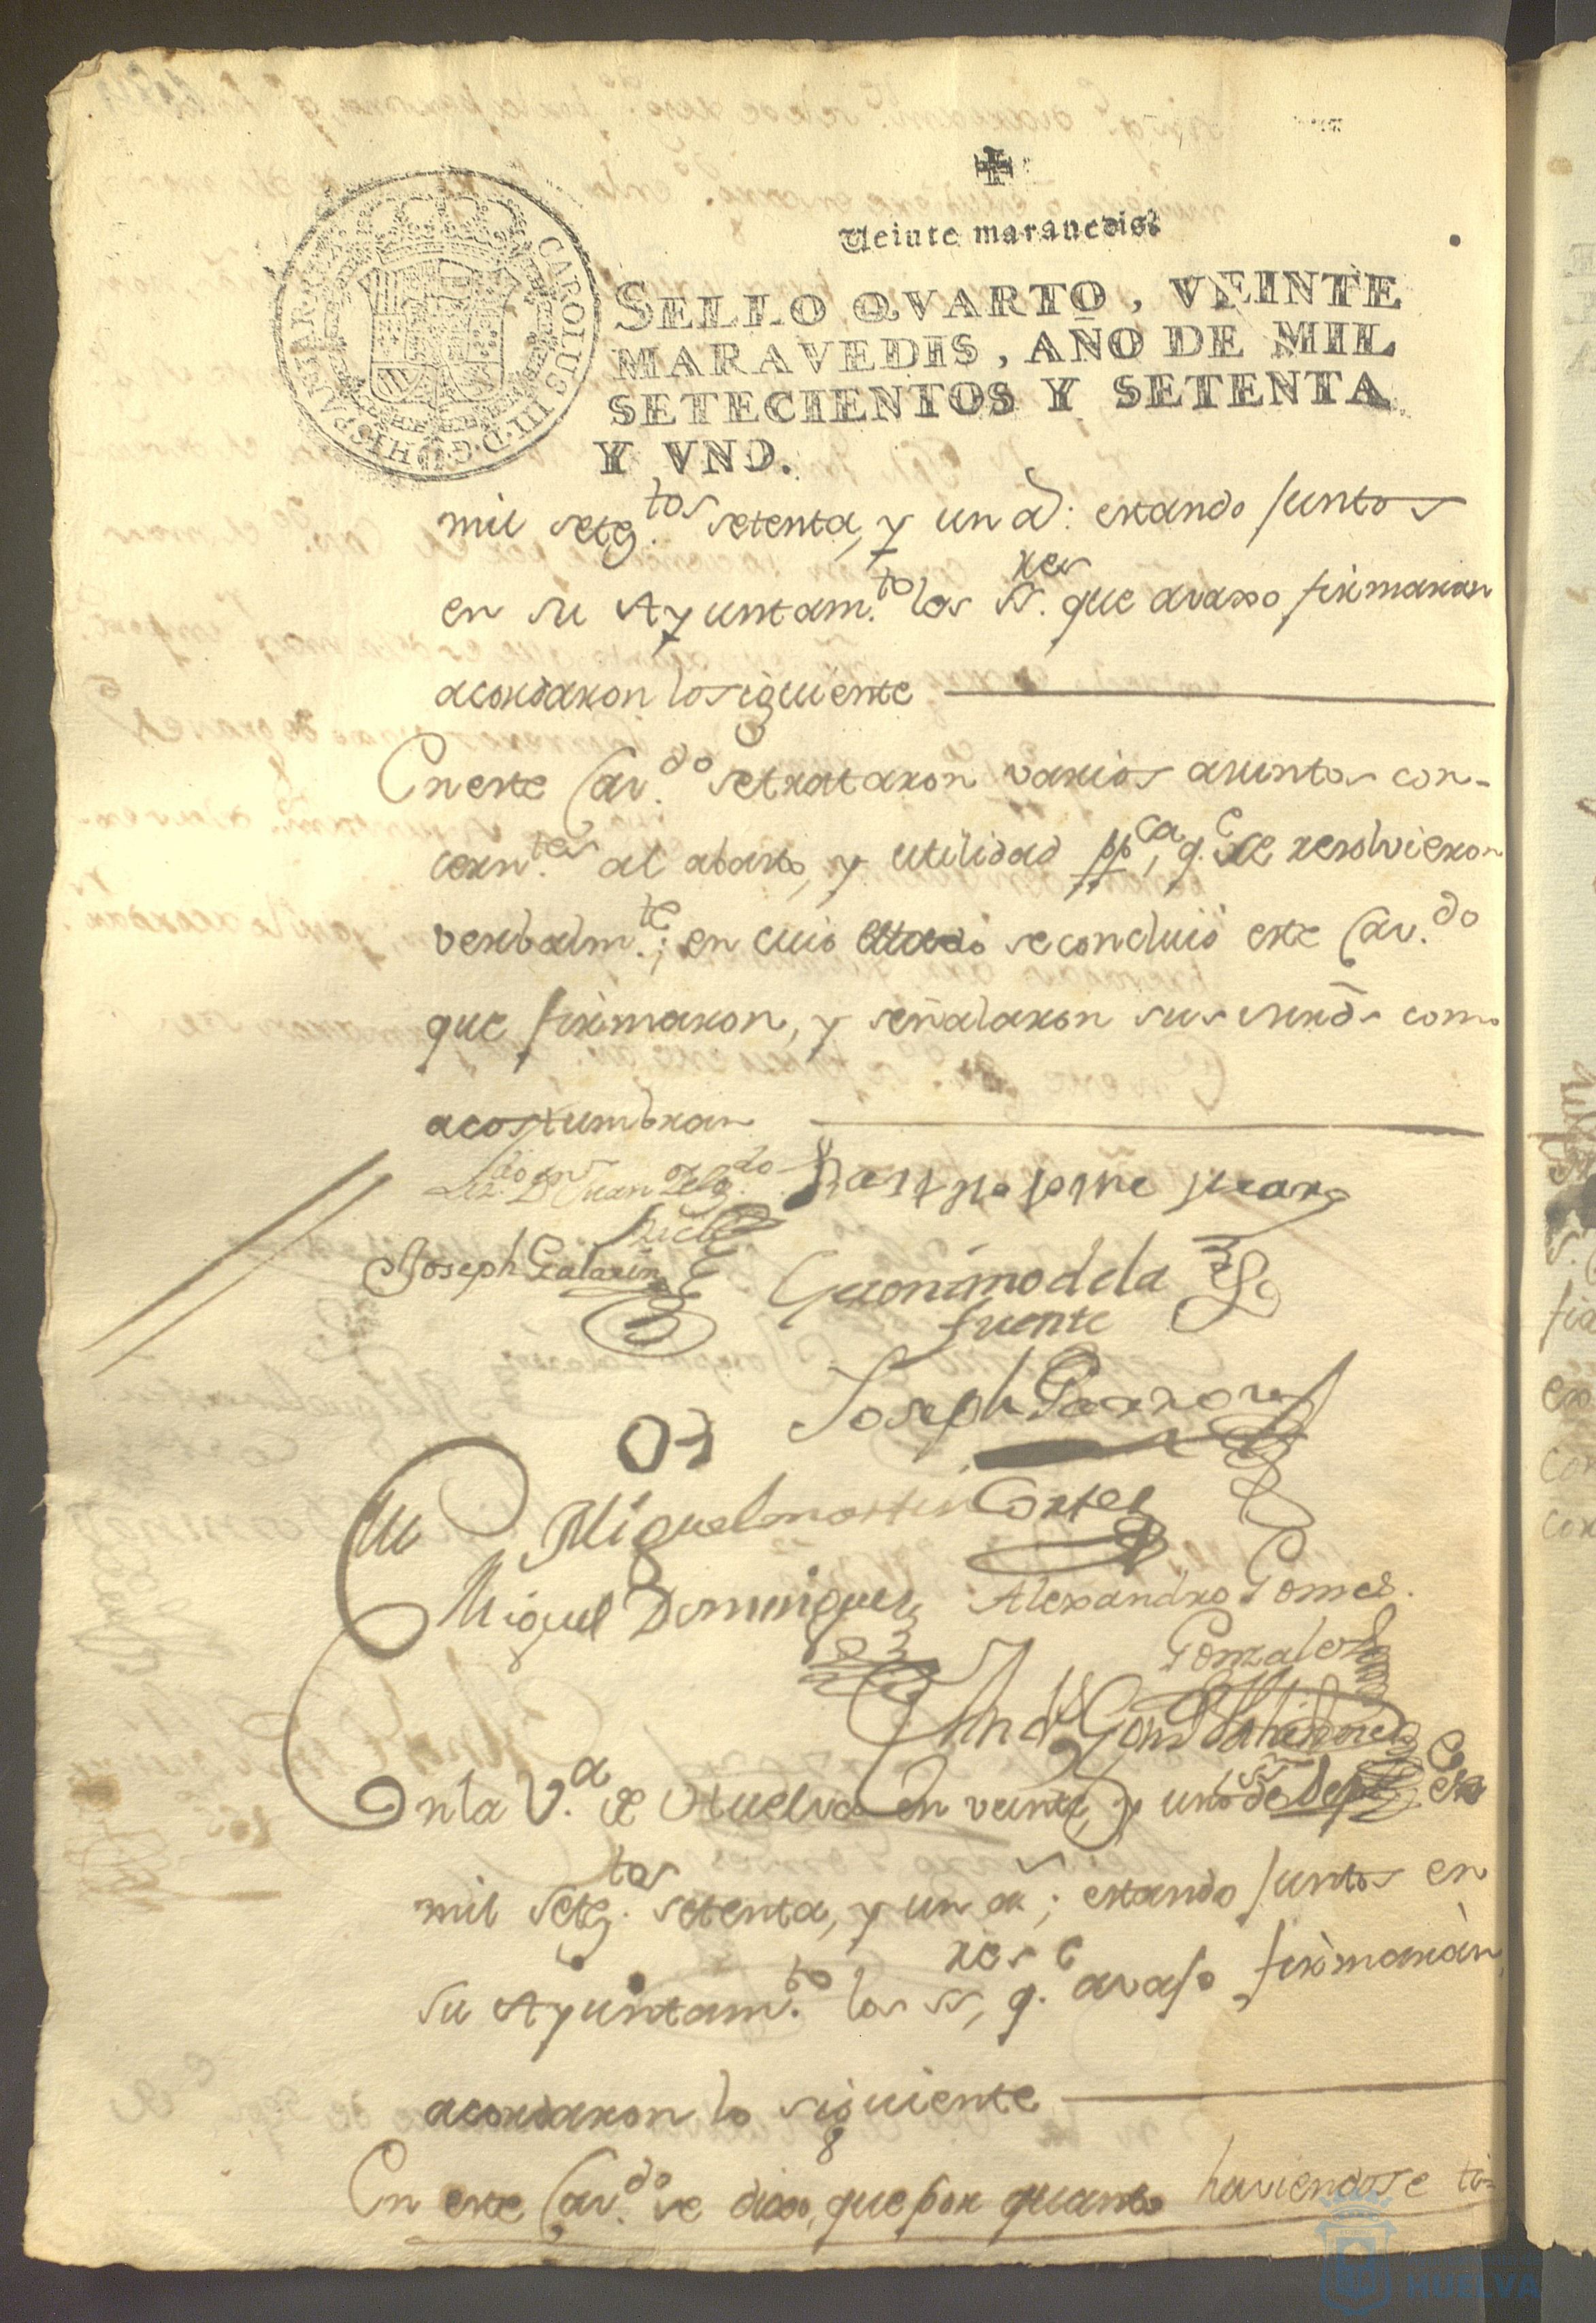 Veinte maravedis.
SELLO QVARTO, VEINTE
MARAVEDIS, AÑO DE MIL
SETECIENTOS Y SETENTA
Y VNO.
CAROLUS III·D·G·HISPANIAR·REX
mil seteg.tos setenta, y un a.s: estando juntos
en su Ayuntam.to los ss.res que avaxo firmaran
acordaron lo siguiente
En este Cav.do se trataron varios asuntos con-
cern.tes al abasto, y utilidad pp.ca, q.e se resolvieron
verbalm.te; en cuio estado se concluió este Cav.do
que firmaron, y señalaron sus mrds como
acostumbran
Liz.do Dn Juan Delg.do
Joseph Galarin
Geronimo de la
fuente
Joseph Garzon
Miguel martin Cortes
Miguel Dominguez
Alexandro Gomes.
Gonzales
En la V.a de Huelva en veinte, y uno de Sept.e de
mil seteg.tos setenta, y un a.s; estando juntos en
su Ayuntam.to los ss.res, q.e avajo firmaràn,
acordaron lo siguiente
En este Cav.do se dixo, que por quanto haviendose
HUELVA